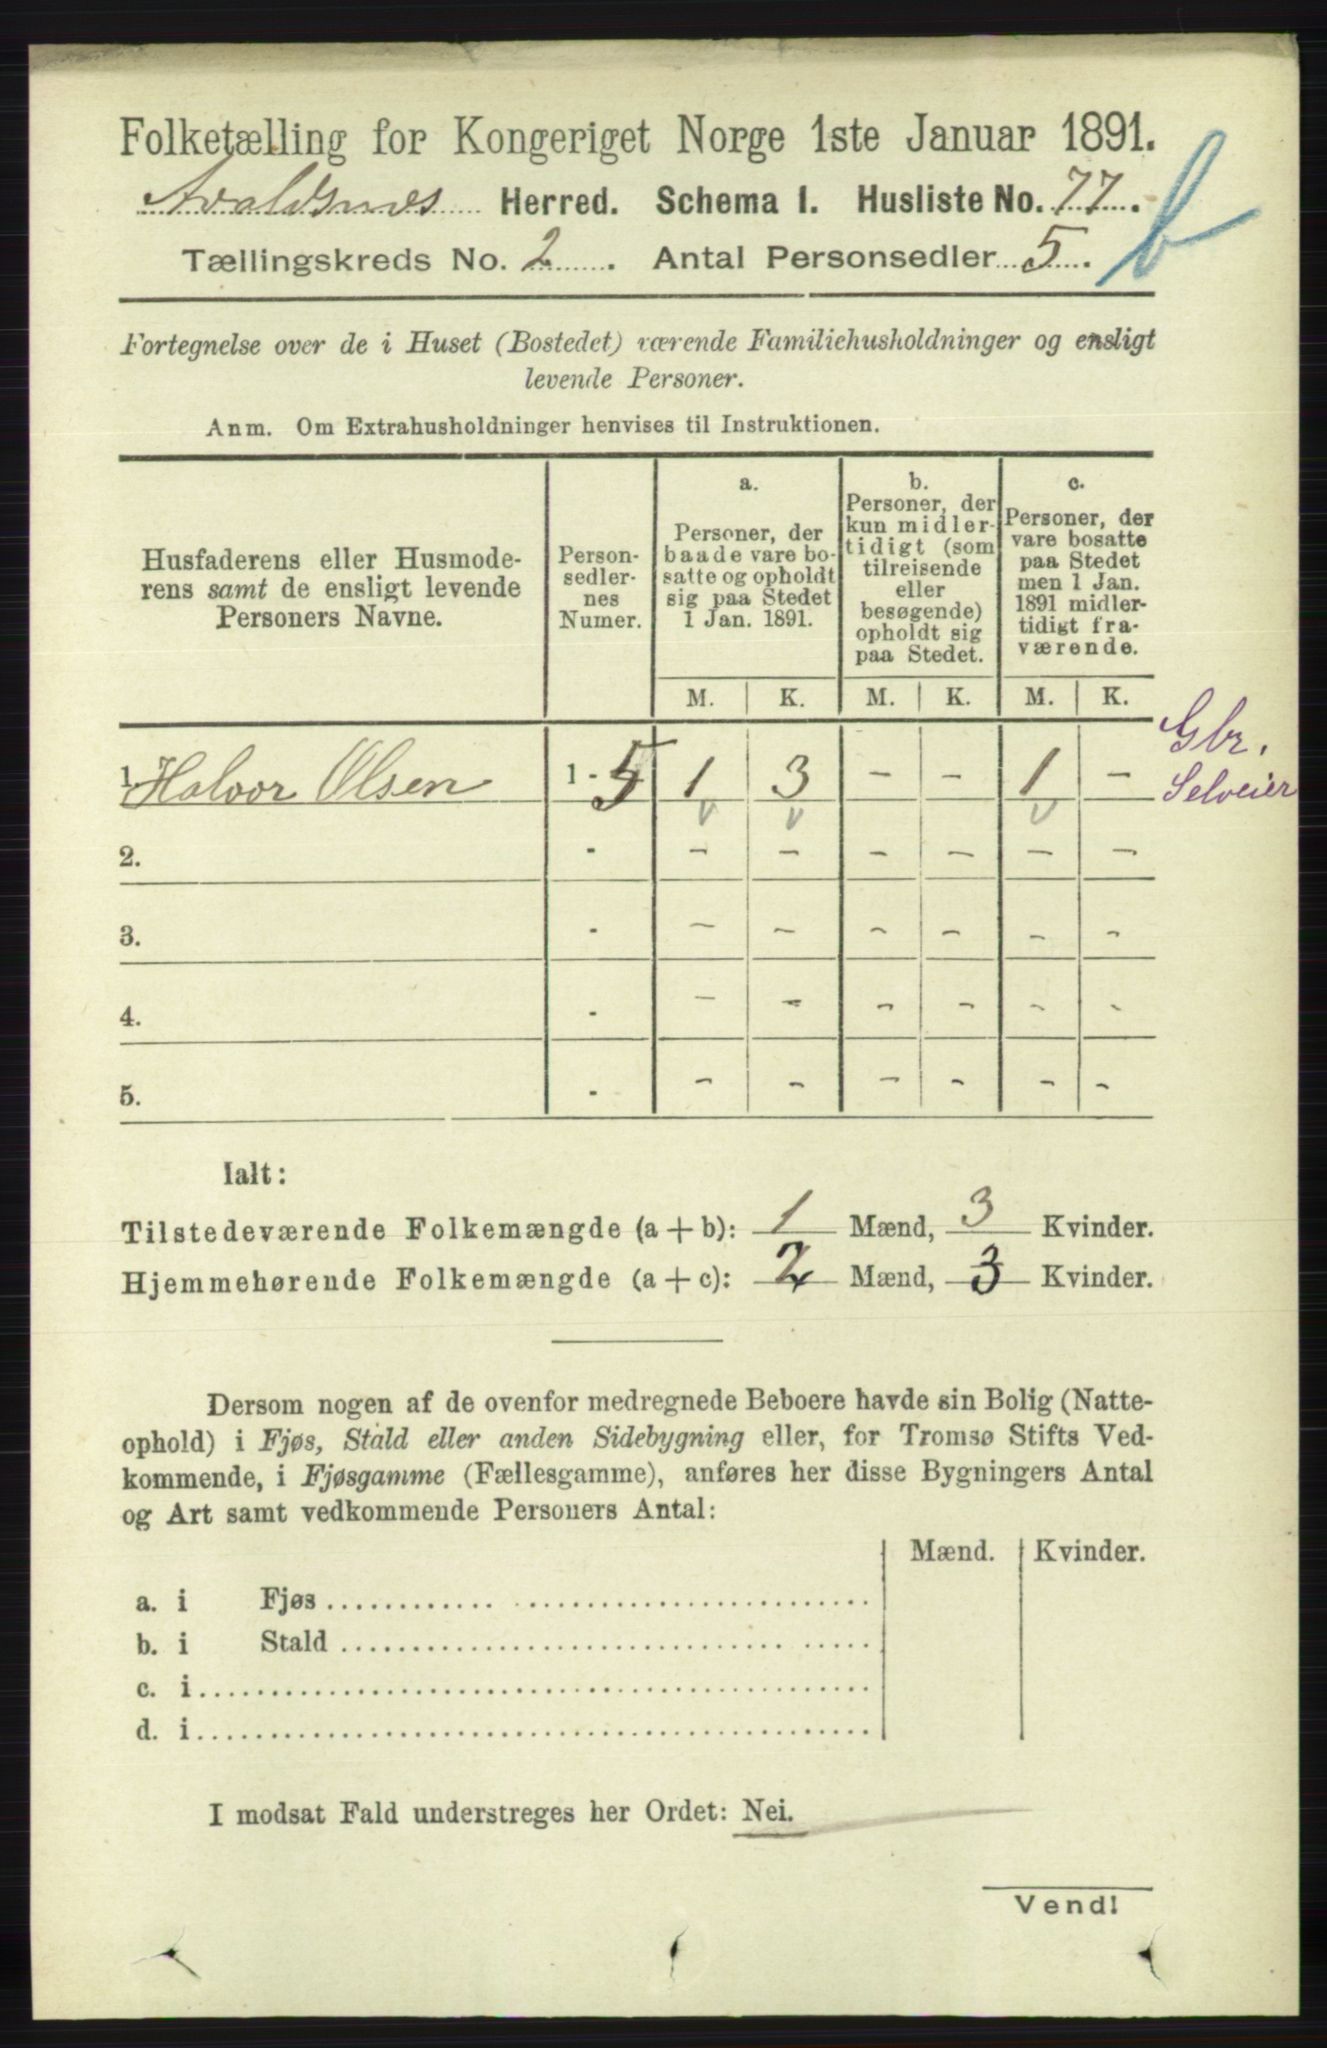 Folketælling for Kongeriget Norge 1ste Januar 1891.
Avaldsnes Herred. Schema I. Husliste No. 77.
b
Tællingskreds No. 2. Antal Personsedler 5.
Fortegnelse over de i Huset (Bostedet) værende Familiehusholdninger og ensligt
levende Personer.
Anm. Om Extrahusholdninger henvises til Instruktionen.
Husfaderens eller Husmode-
rens samt de ensligt levende
Personers Navne.
Person-
sedler-
nes
Numer.
a.
Personer, der
baade vare bo-
satte og opholdt
sig paa Stedet
1 Jan. 1891.
b.
Personer, der
kun midler-
tidigt (som
tilreisende
eller
besøgende)
opholdt sig
paa Stedet.
c.
Personer, der
vare bosatte
paa Stedet
men 1 Jan.
1891 midler-
tidigt fra-
værende.
M. K. M. K. M. K.
1. Halvor Olsen 1 - 5 1 3 - - 1 -
Gbr.
Selveier
v v v
2. - - - - - - -
3. - - - - - - -
4. - - - - - - -
5. - - - - - - -
Ialt:
Tilstedeværende Folkemængde (a + b): 1 Mænd, 3 Kvinder.
Hjemmehørende Folkemængde (a + c): 2 Mænd, 3 Kvinder.
Dersom nogen af de ovenfor medregnede Beboere havde sin Bolig (Natte-
ophold) i Fjøs, Stald eller anden Sidebygning eller, for Tromsø Stifts Ved-
kommende, i Fjøsgamme (Fællesgamme), anføres her disse Bygningers Antal
og Art samt vedkommende Personers Antal:
Mænd. Kvinder.
a. i Fjøs
b. i Stald
c. i
d. i
I modsat Fald understreges her Ordet: Nei.
Vend!